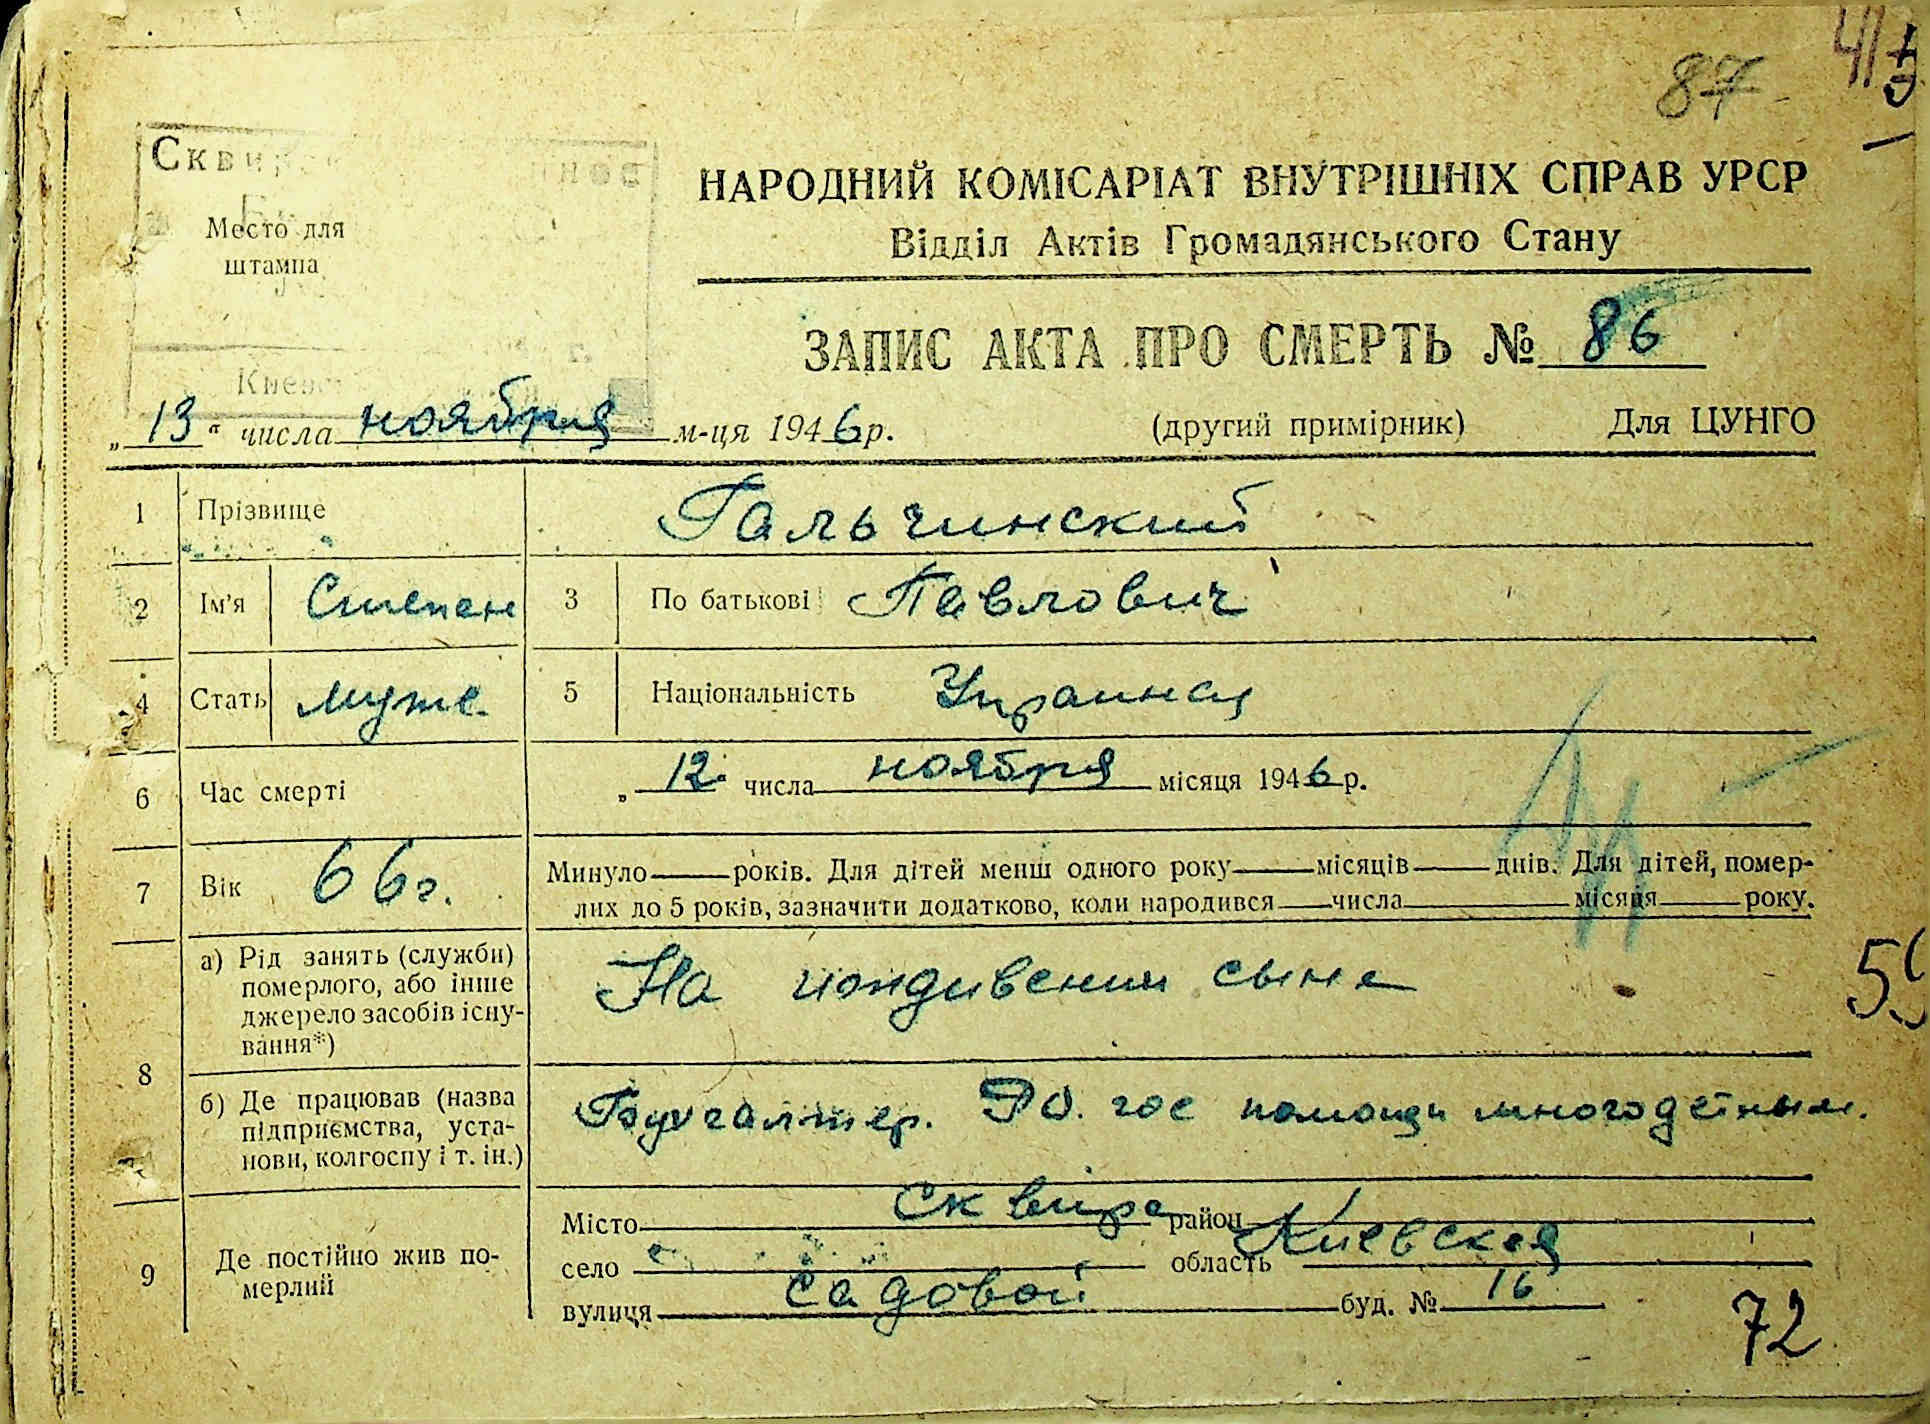 87
41
Сквир
Место для
штампа
НАРОДНИЙ КОМІСАРІАТ ВНУТРІШНІХ СПРАВ УРСР
Відділ Актів Громадянського Стану
ЗАПИС АКТА ПРО СМЕРТЬ № 86
„13“ числа ноября м-ця 1946 р. (другий примірник) Для ЦУНГО
1 Прізвище Гальчинский
2 Ім’я Степан 3 По батькові Павлович
4 Стать мужс. 5 Національність Украинец
6 Час смерті „12“ числа ноября місяця 1946 р.
7 Вік 66 г. Минуло — років. Для дітей менш одного року — місяців — днів. Для дітей, помер-
лих до 5 років, зазначити додатково, коли народився — числа — місяця — року.
8 а) Рід занять (служби) померлого, або інше джерело засобів існу-вання*) На иждивении сына
б) Де працював (назва підприємства, уста-нови, колгоспу і т. ін.) Бухгалтер. гос помощи многодетным.
9 Де постійно жив по-мерлий Місто Сквира район
село область Киевская
вулиця Садовой буд. № 16
72